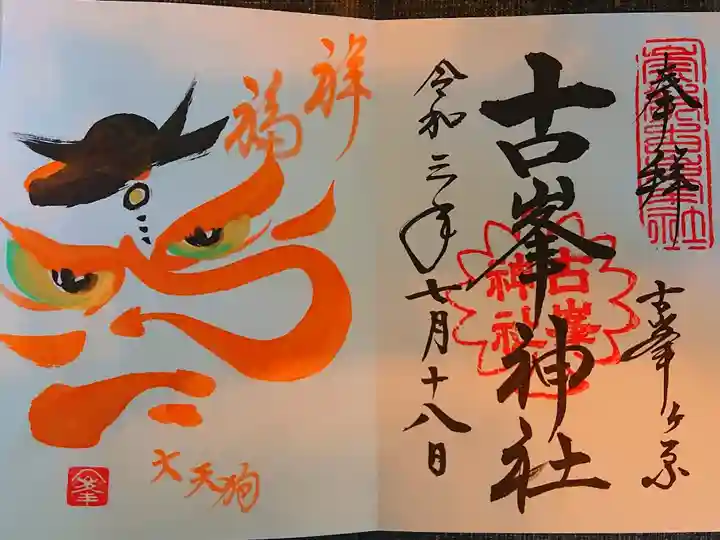 奉拝
古峯ヶ原
古峯神社
令和三年七月十八日
古峯
神社
祥
福
大天狗
峯